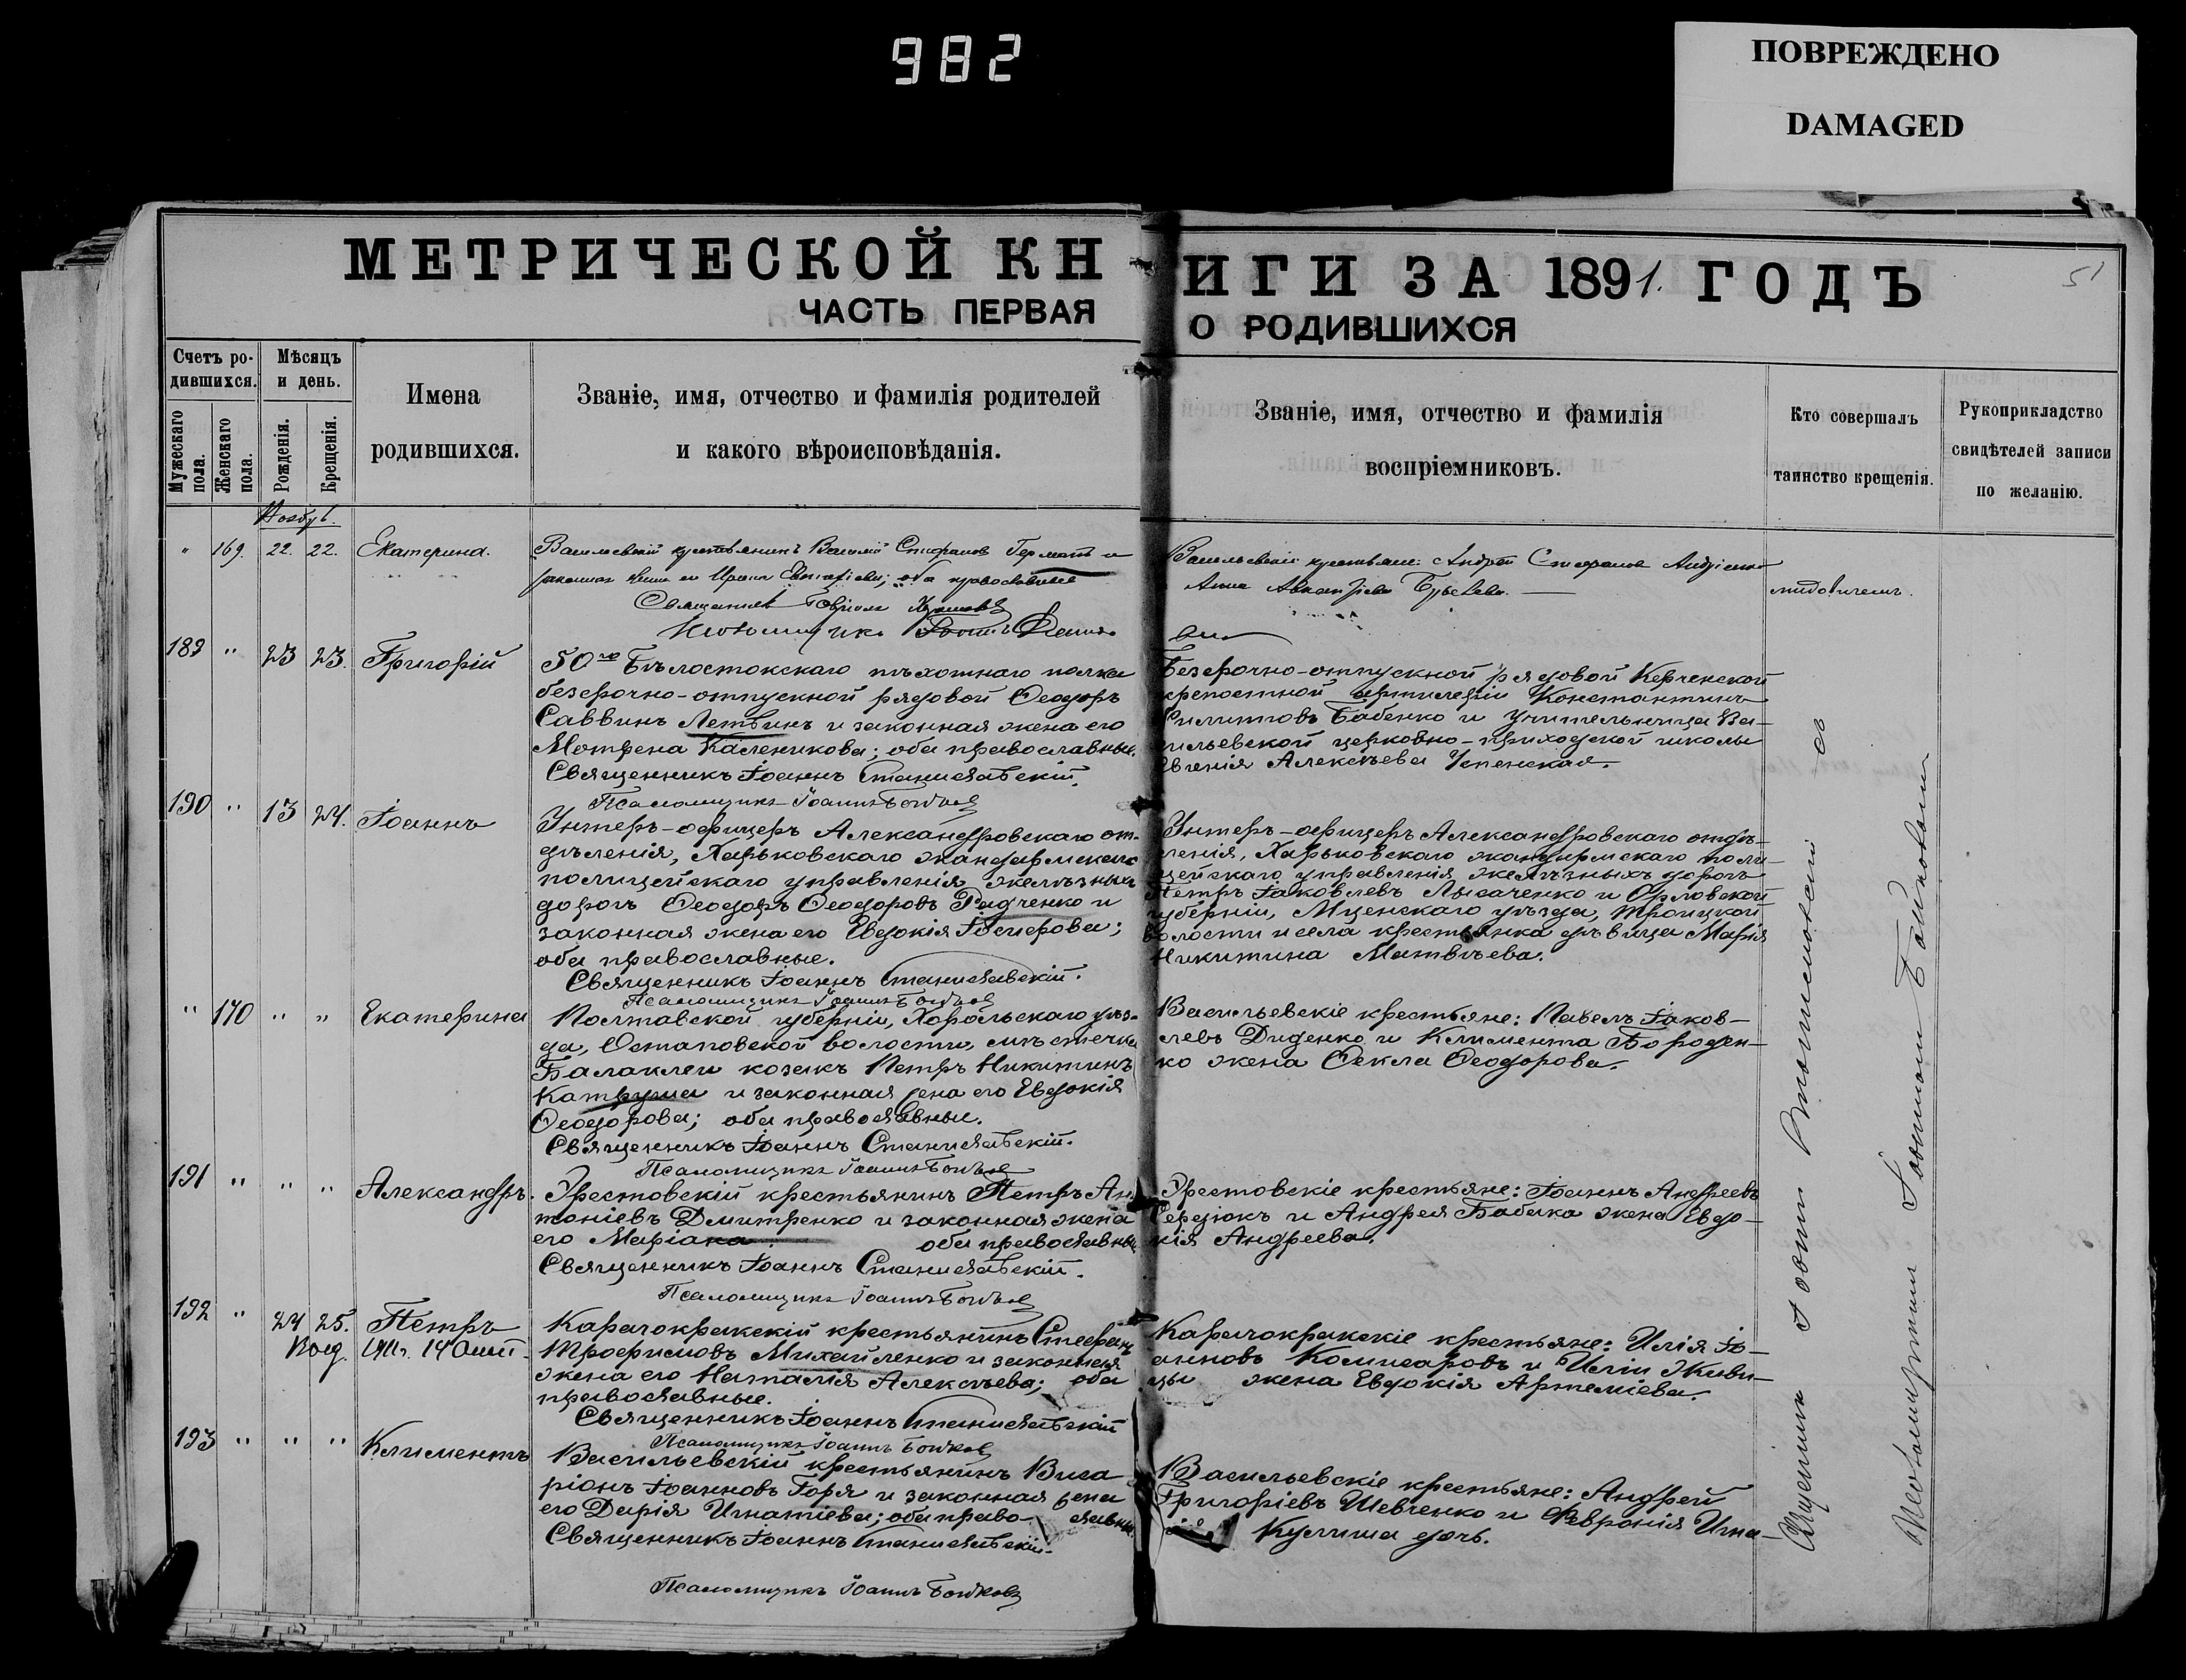 982
ПОВРЕЖДЕНО
DAMAGED
МЕТРИЧЕСКОЙ КНИГИ ЗА 1891. ГОДЪ
51
ЧАСТЬ ПЕРВАЯ О РОДИВШИХСЯ
Счетъ родившихся.
Мужескаго пола.
Женскаго пола.
Мѣсяцъ и день.
Рожденія.
Крещенія.
Имена родившихся.
Званіе, имя, отчество и фамилія родителей
и какого вѣроисповѣданія.
Званіе, имя, отчество и фамилія
воспріемниковъ.
Кто совершалъ
таинство крещенія.
Рукоприкладство
свидѣтелей записи
по желанію.
" 169. 22. 22. Екатерина.
Васильевскій крестьянинъ Василій Стефановъ
законная жена его Ирина оба православные
Васильевскіе крестьяне: Андрей Стефановъ
Анна
189 " 23 23. Григорій
50го Бѣлостокскаго пѣхотнаго полка
безсрочно-отпускной рядовой Ѳеодоръ
Саввинъ Летвинъ и законная жена его
Мотрена Каленикова; оба православные.
Священникъ Іоаннъ Станиславскій.
Псаломщикъ Іоаннъ Бойковъ
Безсрочно-отпускной рядовой Керченской
крепостной артилеріи Константинъ
Филиповъ Бабенко и учительница Ва-
сильевской церковно-приходской школы
Евгенія Алексѣева Успенская.
190 " 13 24. Іоаннъ
Унтеръ-офицеръ Александровскаго от-
дѣленія, Харьковскаго жандармскаго
полицейскаго управленія желѣзныхъ
дорогъ Ѳеодоръ Ѳеодоровъ Радченко и
законная жена его Евдокія Іосифова;
оба православные.
Священникъ Іоаннъ Станиславскій.
Псаломщикъ Іоаннъ Бойковъ
Унтеръ-офицеръ Александровскаго отдѣ-
ленія, Харьковскаго жандармскаго поли-
цейскаго управленія желѣзныхъ дорогъ
Петръ Іаковлевъ Лысаченко и Орловской
губерніи, Мценскаго уѣзда, Троицкой
волости и села крестьянка дѣвица Марія
Никитина Матвѣева.
" 170 " " Екатерина
Полтавской губерніи, Хорольскаго уѣз-
да, Остаповской волости, мѣстечка
Балаклеи козакъ Петръ Никитинъ
Катруша и законная жена его Евдокія
Ѳеодорова; оба православные.
Священникъ Іоаннъ Станиславскій.
Псаломщикъ Іоаннъ Бойковъ
Васильевскіе крестьяне: Павелъ Іаков-
левъ Диденко и Климента Бороден-
ко жена Ѳекла Ѳеодорова.
191 " " " Александръ.
Эрестовскій крестьянинъ Петръ Ан-
тоніевъ Дмитренко и законная жена
его Маріана: оба православные
Священникъ Іоаннъ Станиславскій.
Псаломщикъ Іоаннъ Бойковъ
Эрестовскіе крестьяне: Іоаннъ Андреевъ
Сердюкъ и Андрея Бабака жена Евдо-
кія Андреева.
192 " 24 25. Петръ
1911г. 14
Карачокракскій крестьянинъ Стефанъ
Трофимовъ Михайленко и законная
жена его Наталія Алексѣева; оба
православные.
Священникъ Іоаннъ Станиславскій
Псаломщикъ Іоаннъ Бойковъ
Карачокракскіе крестьяне: Илія Іо-
анновъ Комисаровъ и Иліи Живи-
цы жена Евдокія Артеміева.
193 " " " Климентъ
Васильевскій крестьянинъ Виса-
ріонъ Іоанновъ Горя и законная жена
его Дарія Игнатіева; оба православные
Священникъ Іоаннъ Станиславскій.
Псаломщикъ Іоаннъ Бойковъ
Васильевскіе крестьяне: Андрей
Григоріевъ Шевченко и Февронія Игна-
Кулиша дочь.